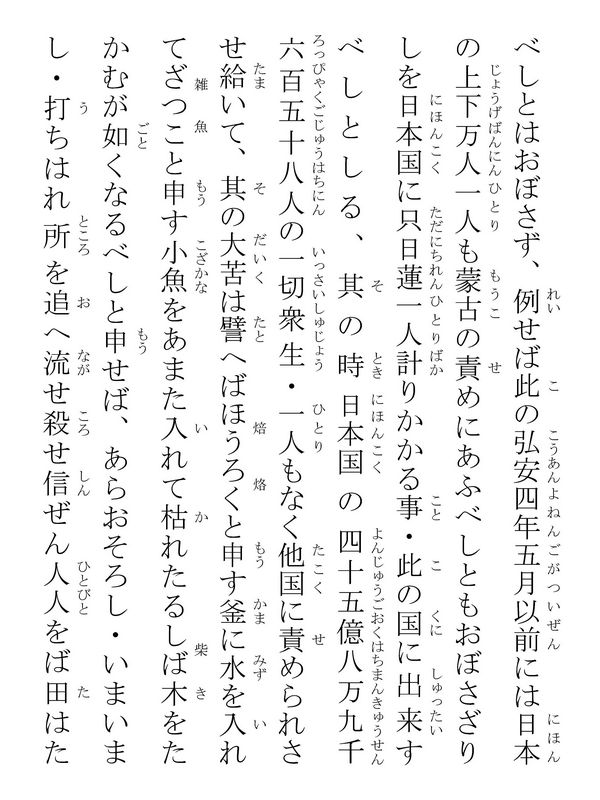 べしとはおぼさず、例せば此の弘安四年五月以前には日本
の上下万人一人も蒙古の責めにあふべしともおぼさざり
しを日本国に只日蓮一人計りかかる事・此の国に出来す
べしとしる、其の時日本国の四十五億八万九千
六百五十八人の一切衆生・一人もなく他国に責められさ
せ給いて、其の大苦は譬へばほうろくと申す釜に水を入れ
てざつこと申す小魚をあまた入れて枯れたるしば木をた
かむが如くなるべしと申せば、あらおそろし・いまいま
し・打ちはれ所を追へ流せ殺せ信ぜん人人をば田はた